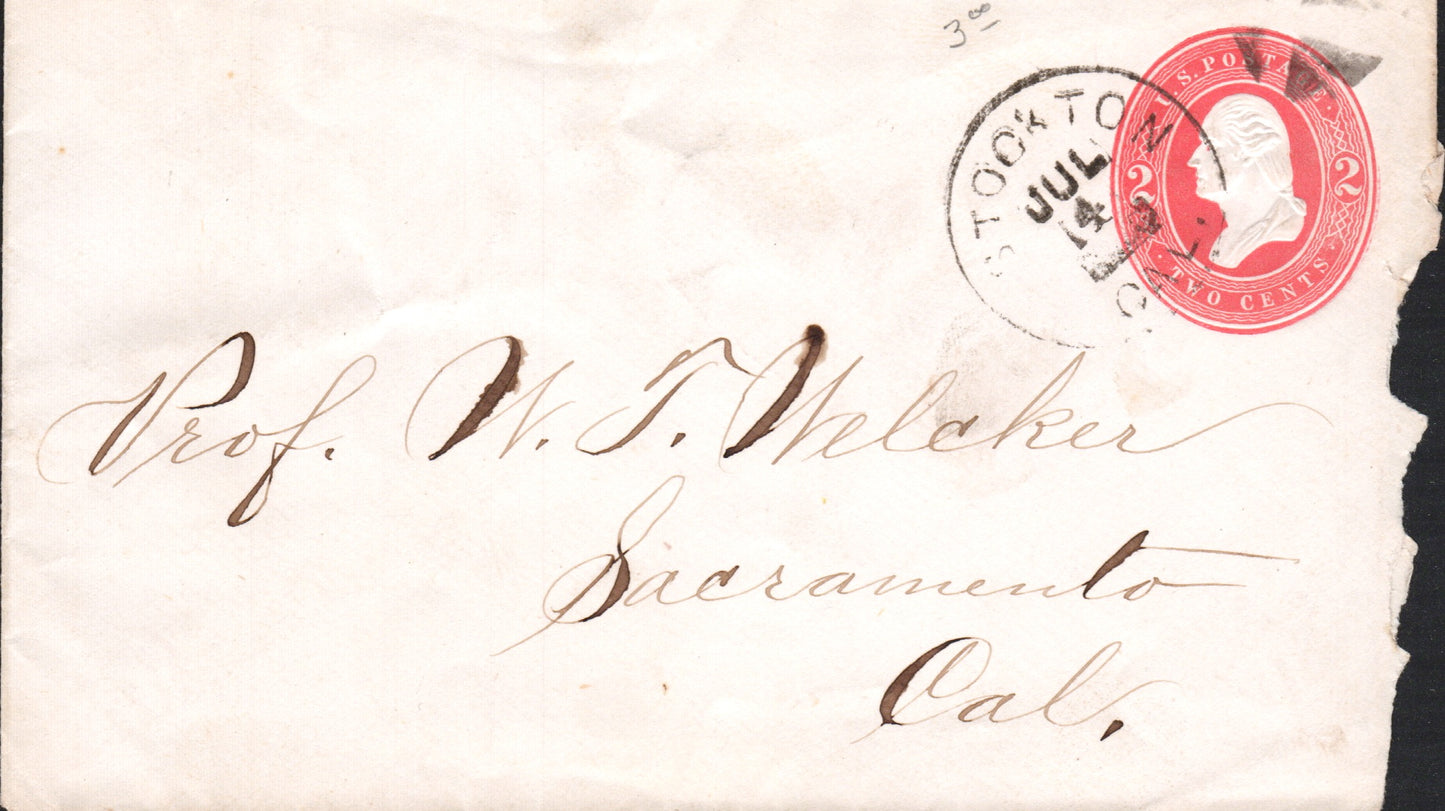 3⁰⁰
STOCKTON
JUL
14
CAL.
U.S. POSTAGE
2 2
TWO CENTS
Prof. W. T. Welcker
Sacramento
Cal.